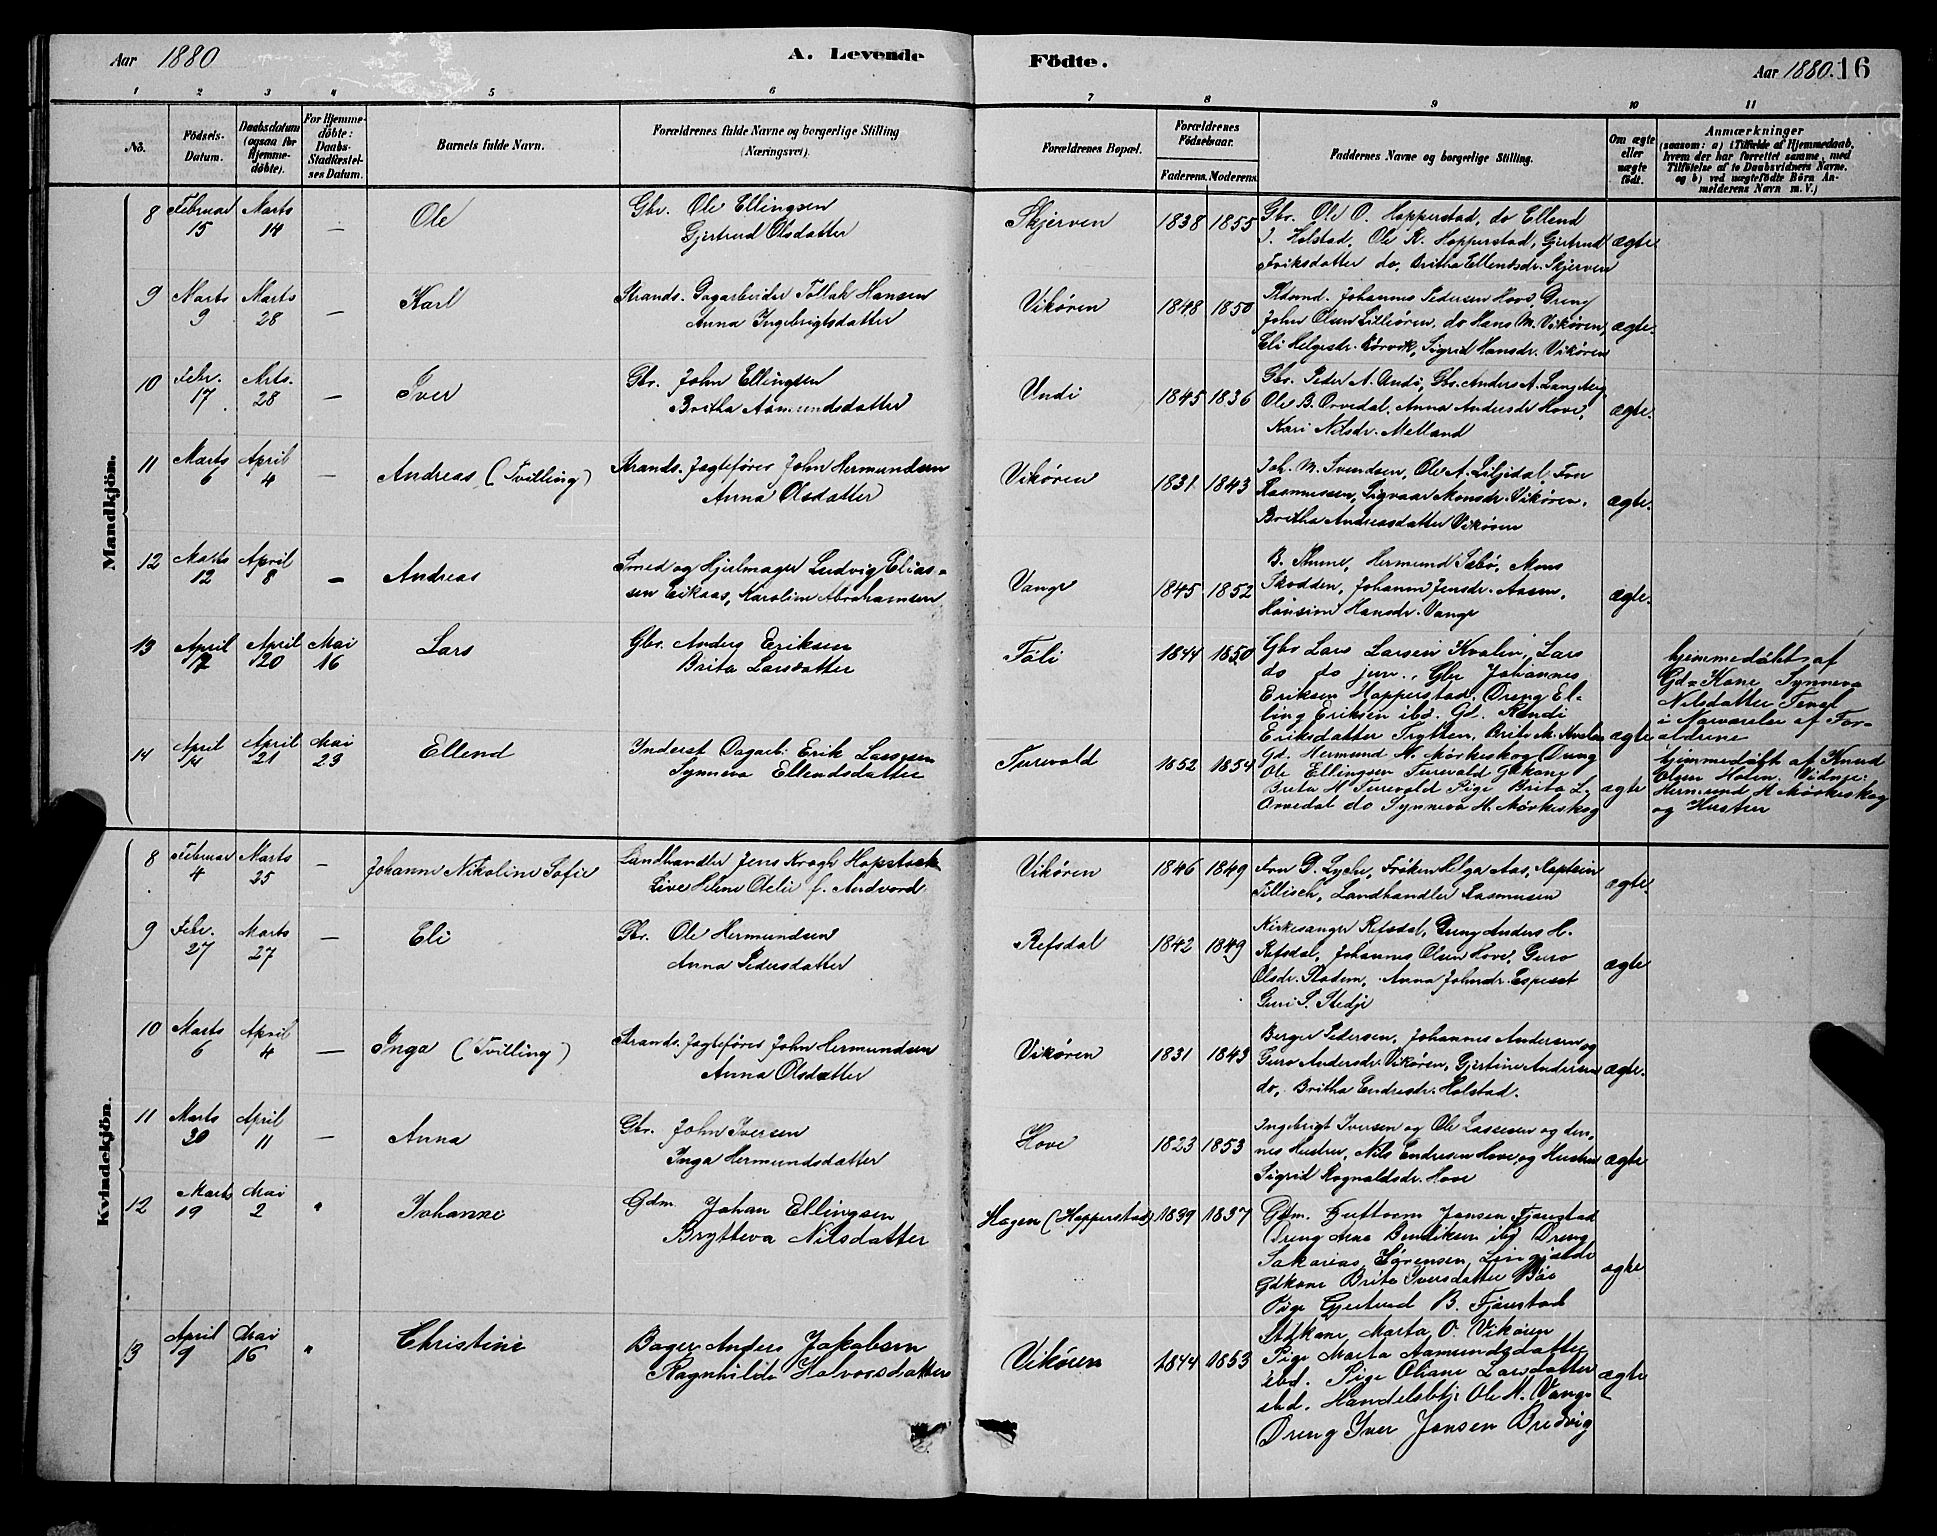 Aar 1880
A. Levende
Födte.
Aar 1880. 16
1 2 3 4 5 6 7 8 9 10 11
No.
Födsels-Datum.
Daabsdatum (ogsaa for Hjemmedöbte).
For Hjemmedöbte: Daabs-Stadfæstelses Datum.
Barnets fulde Navn.
Forældrenes fulde Navne og borgerlige Stilling (Næringsvei).
Forældrenes Bopæl.
Forældrenes Födselsaar.
Faderens. Moderens.
Faddernes Navne og borgerlige Stilling.
Om ægte eller uægte födt.
Anmærkninger
(saasom: a) i Tilfælde af Hjemmedaab, hvem der har forrettet samme, med Tilföielse af to Daabsvidners Navne, og b) ved uægtefödte Börn Anmelderens Navn m. V.)
Mandkjön.
8 Februar 15 Marts 14 — Ole
Gbr. Ole Ellingsen
Gjertrud Olsdatter
Skjerven 1838 1855
Gbr. Ole O. Hopperstad, do Ellend
J. Holstad, Ole R. Hopperstad, Gjertrud
Eriksdatter do, Britha Ellendsdr. Skjerven
ægte
9 Marts 9 Marts 28 — Karl
Strands. Dagarbeider Tollak Hansen
Anna Ingebrigtsdatter
Vikøren 1848 1850
Johannes Pedersen Hove, Dreng
John Olsen Lilleören, do Hans M. Vikøren,
Eli Helgesdr. Rörvik, Sigrid Hansdr. Vikøren
ægte.
10 Febr. 17 Mrts. 28 — Iver
Gbr. John Ellingsen
Britha Aamundsdatter
Undi 1845 1836
Gbr. Peder A. Undi, Gbr. Anders A. Langteig
Ole B. Orvedal, Anna Andersdr Hove,
Kari Nilsdr. Melland
ægte.
11 Marts 6 April 4 — Andreas (Tvilling)
Strands. Jagtefører John Hermundsen
Anna Olsdatter
Vikøren 1831 1843
Joh. M. Svendsen, Ole A. Liljedal, Fru
Rasmussen, Sigvaar Monsdr. Vikøren,
Britha Andreasdatter Vikøren
ægte.
12 Marts 12 April 8 — Andreas
Smed og Hjulmager Ludvig Elias-
sen Eikaas, Karoline Abrahamsen
Vange 1845 1852
B. Thune, Hermund Sæbö, Mons
Skodden, Johanne Jensdr. Aasen,
Hansine Hansdr. Vange
ægte.
13 April 17 April 20 Mai 16 Lars
Gbr. Anders Eriksen
Brita Larsdatter
Föli 1844 1850
Gbr Lars Larsen Kvalen, Lars
do do jun., Gbr Johannes
Eriksen Hopperstad. Dreng El-
ling Eriksen ibd. Gd. Randi
Eriksdatter Trytten, Brita M. Kvalen
ægte
hjemmedöbt af
Gd=Kone Synneva
Nilsdatter Fenel
i Nærværelse af For-
ældrene
14 April 14 April 21 Mai 23 Ellend
Inderst Dagarb: Erik Lassesen
Synneva Ellendsdatter
Turevald 1852 1854
Gd. Hermund H. Mörkeskog, Dreng
Ole Ellingsen Turevald, Gdkone
Brita H Turevald Pige Brita L.
Orvedal do Synneva H. Mörkeskog
ægte
hjemmedöbt af Knud
Olsen Holen. Vidner:
Hermund H Mörkeskog
og Hustru
Kvindekjön.
8 Februar 4 Marts 25 — Johanne Nikoline Sofie
Landhandler Jens Krogh Hopstock
Live Helene Otelie f. Andvord
Vikøren 1846 1849
Fru D. Lyche, Frøken Helga Aas, Kaptein
Tillisch, Landhandler Rasmussen
ægte.
9 Febr. 27 Marts 27 — Eli
Gbr. Ole Hermundsen
Anna Pedersdatter
Refsdal 1842 1849
Kirkesanger Refsdal, Dreng Anders H.
Refsdal, Johannes Olsen Hove, Guro
Olsdr. Stadem, Anna Johnsdr. Espeset
Guri P. Stedje
ægte
10 Marts 6 April 4 — Inga (Tvilling)
Strands. Jagtefører John Hermundsen
Anna Olsdatter
Vikøren 1831 1843
Berger Pedersen, Johannes Andersen og
Guro Andersdr. Vikøren, Gjertine Andersen
do, Britha Endresdr. Holstad.
ægte.
11 Marts 20 April 11 — Anna
Gbr. John Iversen
Inga Hermundsdatter
Hove 1823 1853
Ingebrigt Iversen og Ole Lassesen og den-
nes Hustru, Nils Endresen Hove og Hustru
Sigrid Rognaldsdr. Hove
ægte
12 Marts 19 Mai 2 " Johanne
Gdm. Johan Ellingsen
Brytteva Nilsdatter
Hagen (Hopperstad) 1839 1837
Gdm. Guttorm Jonsen Fjærestad
Dreng Arne Bendiksen ibd Dreng
Sakarias Sørensen
Gdkone Brita Iversdatter Böe
Pige Gjertrud B. Fjærestad
ægte
13 April 9 Mai 16 " Christine
Bager Anders Jakobsen
Ragnhilde Halvorsdatter
Vikøren 1844 1853
Stdkone Marta O. Vikøren
Pige Marta Aamundsdatter
ibd. Pige Oliane Larsdatter
ibd. Handelsbtj. Ole N. Vange
Dreng Iver Jonsen Bredvig
ægte